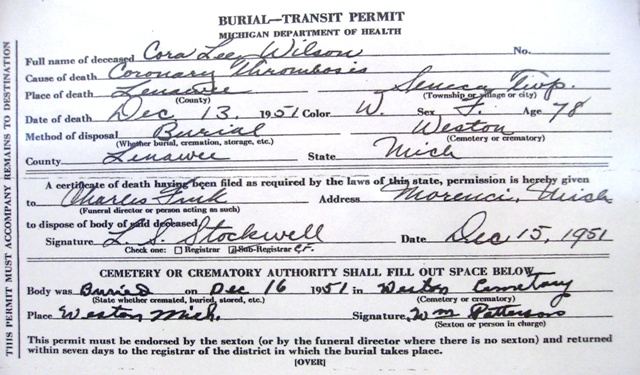 BURIAL—TRANSIT PERMIT
MICHIGAN DEPARTMENT OF HEALTH
Full name of deceased Cora Lee Wilson No.
Cause of death Coronary Thrombosis
Place of death Lenawee Seneca Twp.
(County) (Township or village or city)
Date of death Dec 13, 1951 Color W. Sex F. Age 78
Method of disposal Burial Weston
(Whether burial, cremation, storage, etc.) (Cemetery or crematory)
County Lenawee State Mich
A certificate of death having been filed as required by the laws of this state, permission is hereby given
to Charles Fink Address Morenci, Mich
(Funeral director or person acting as such)
to dispose of body of said deceased
Signature L. S. Stockwell Date Dec 15, 1951
Check one: Registrar Sub-Registrar C.F.
CEMETERY OR CREMATORY AUTHORITY SHALL FILL OUT SPACE BELOW
Body was Buried on Dec 16 1951 in Weston Cemetary
(State whether cremated, buried, stored, etc.) (Cemetery or crematory)
Place Weston Mich. Signature Wm Patterson
(Sexton or person in charge)
This permit must be endorsed by the sexton (or by the funeral director where there is no sexton) and returned
within seven days to the registrar of the district in which the burial takes place.
[OVER]
THIS PERMIT MUST ACCOMPANY REMAINS TO DESTINATION